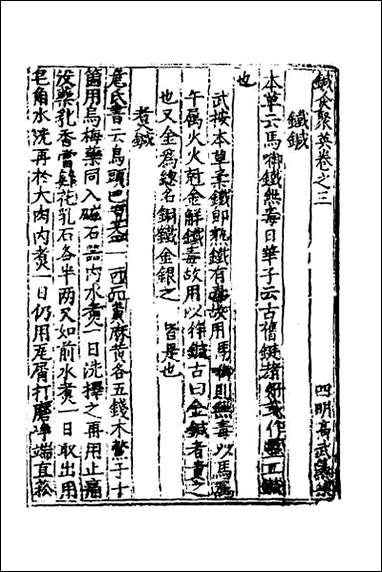 鍼灸聚英卷之三
四明高武纂集
鐵鍼
本草云馬啣鐵無毒日華子云古舊鋌者好或作醫工鍼
也
武按本草柔鐵即熟鐵有毒故用馬啣則無毒以馬屬
午屬火火尅金解鐵毒故用以作鍼古曰金鍼者貴之
也又金為總名銅鐵金銀之
皆是也
煮鍼
危氏書云烏頭巴豆各一兩 麻黃各五錢木鱉子十
箇用烏梅藥同入磁石器內水煮一日洗擇之再用止痛
沒藥乳香當歸花乳石各半兩又如前水煮一日取出用
皂角水洗再於犬肉內煮一日仍用瓦屑打磨淨端直菘